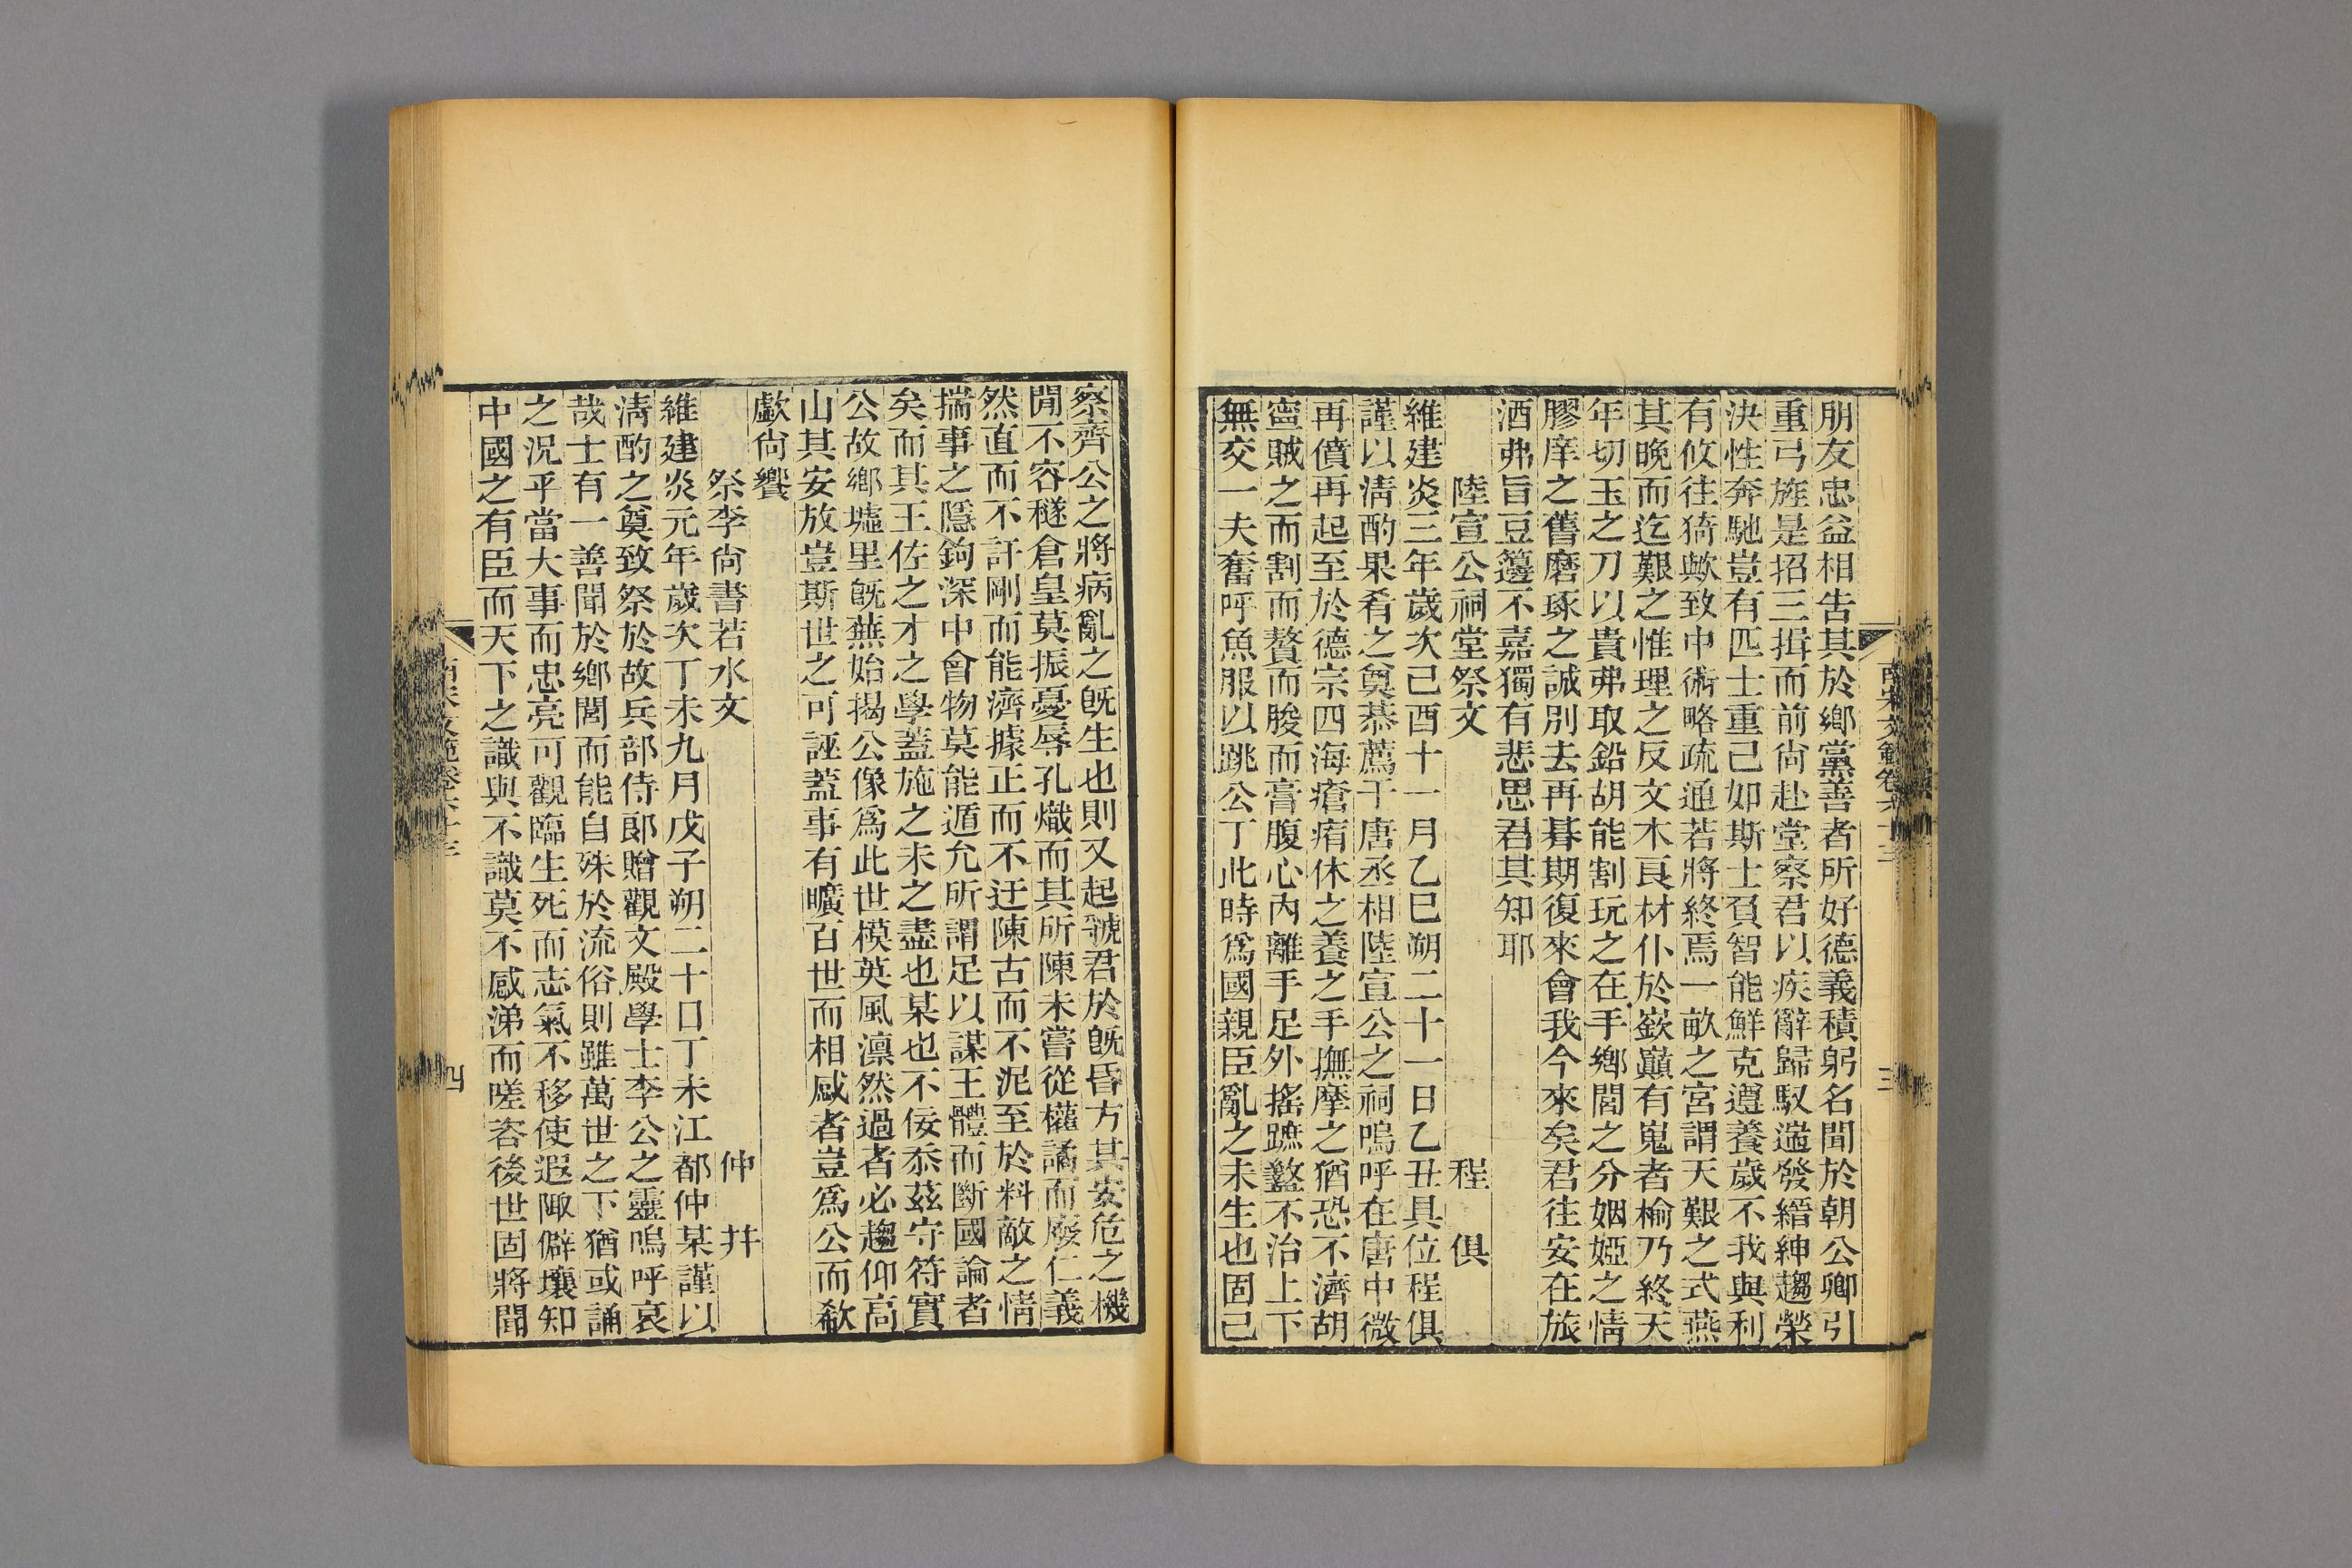 朋友忠益相告其於鄉黨善者所好德義積躬名聞於朝公卿引
重弓旌是招三揖而前尙赴堂察君以疾辭歸馭遄發縉紳趨榮
決性奔馳豈有匹士重己如斯士負智能鮮克遵養歲不我與利
有攸往猗歟致中術略疏通若將終焉一畝之宮謂天艱之式燕
其晩而迄艱之惟理之反文木良材仆於嶔巔有嵬者楡乃終天
年切玉之刀以貴弗取鉛胡能割玩之在手鄉閭之分姻婭之情
膠庠之舊磨琢之誠別去再朞期復來會我今來矣君往安在旅
酒弗旨豆籩不嘉獨有悲思君其知耶
陸宣公祠堂祭文　程　俱
維建炎三年歲次己酉十一月乙巳朔二十一日乙丑具位程俱
謹以淸酌果肴之奠恭薦于唐丞相陸宣公之祠嗚呼在唐中微
再僨再起至於德宗四海瘡痏休之養之手撫摩之猶恐不濟胡
寍賊之而割而贅而朘而膏腹心內離手足外搖蹠盭不治上下
無交一夫奮呼魚服以跳公丁此時爲國親臣亂之未生也固已
察齊公之將病亂之旣生也則又起虢君於旣昏方其安危之機
閒不容䆳倉皇莫振憂辱孔熾而其所陳未嘗從權譎而廢仁義
然直而不訐剛而能濟據正而不迂陳古而不泥至於料敵之情
揣事之隱鉤深中會物莫能遁允所謂足以謀王體而斷國論者
矣而其王佐之才之學蓋施之未之盡也某也不佞忝茲守符實
公故鄉墟里旣蕪始揭公像爲此世模英風凛然過者必趨仰高
山其安放豈斯世之可誣蓋事有曠百世而相感者豈爲公而欷
歔尙饗
祭李尙書若水文　仲　幷
維建炎元年歲次丁未九月戊子朔二十日丁未江都仲某謹以
淸酌之奠致祭於故兵部侍郎贈觀文殿學士李公之靈嗚呼哀
哉士有一善聞於鄉閭而能自殊於流俗則雖萬世之下猶或誦
之況平當大事而忠亮可觀臨生死而志氣不移使遐陬僻壤知
中國之有臣而天下之識與不識莫不感涕而嗟咨後世固將聞
南宋文範卷六十三
三
南宋文範卷六十三
四